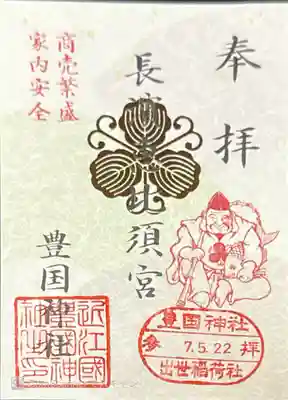 奉拝
長濱恵比須宮
商売繁盛
家内安全
豊国神社
豊国神社
参 7.5.22 拝
出世稲荷社
近江國